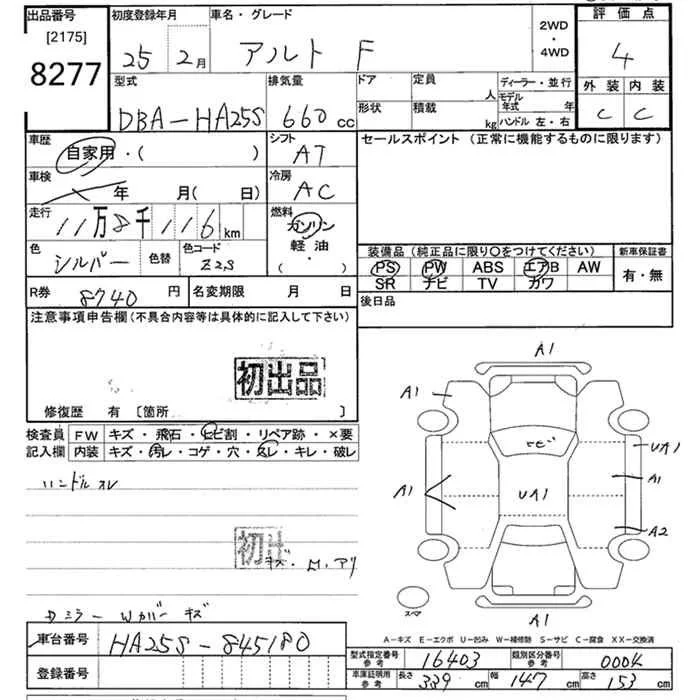 出品番号 初度登録年月 車名・グレード 2WD・4WD 評価点
[2175]
8277
25 2月 アルト F 4
型式 排気量 ドア 定員 人 ディーラー・並行 外装 内装
DBA-HA25S 660cc 形状 積載 kg モデル年式 年 C C
ハンドル 左・右
車歴 シフト セールスポイント (正常に機能するものに限ります)
自家用・( ) AT
車検 冷房
年 月( 日) AC
走行 燃料
11万8千116km ガソリン
軽油
・
( )
色 シルバー 色替 色コード Z2S
装備品 (純品に限り○をつけてください) 新車保証書
PS PW ABS エアB AW 有・無
SR ナビ TV カワ
R券 8740円 名変期限 月 日 後日品
注意事項申告欄(不具合内容等は具体的に記入して下さい)
初出品
修復歴 有 [箇所 ]
検査員 FW キズ・飛石・ヒビ割・リペア跡・×要
記入欄 内装 キズ・汚レ・コゲ・穴・スレ・キレ・破レ
ハンドル スレ
Dミラー Wカバー キズ
車台番号 HA25S-845180
登録番号
A1
A1
ヒビ
UA1
A1
A1
UA1
A2
スペア
A1
A-キズ E-エクボ U-凹み W-補修跡 S-サビ C-腐食 XX-交換済
型式指定番号 参考 16403 類別区分番号 参考 0004
車庫証明用 参考 長さ 339cm 幅 147cm 高さ 153cm